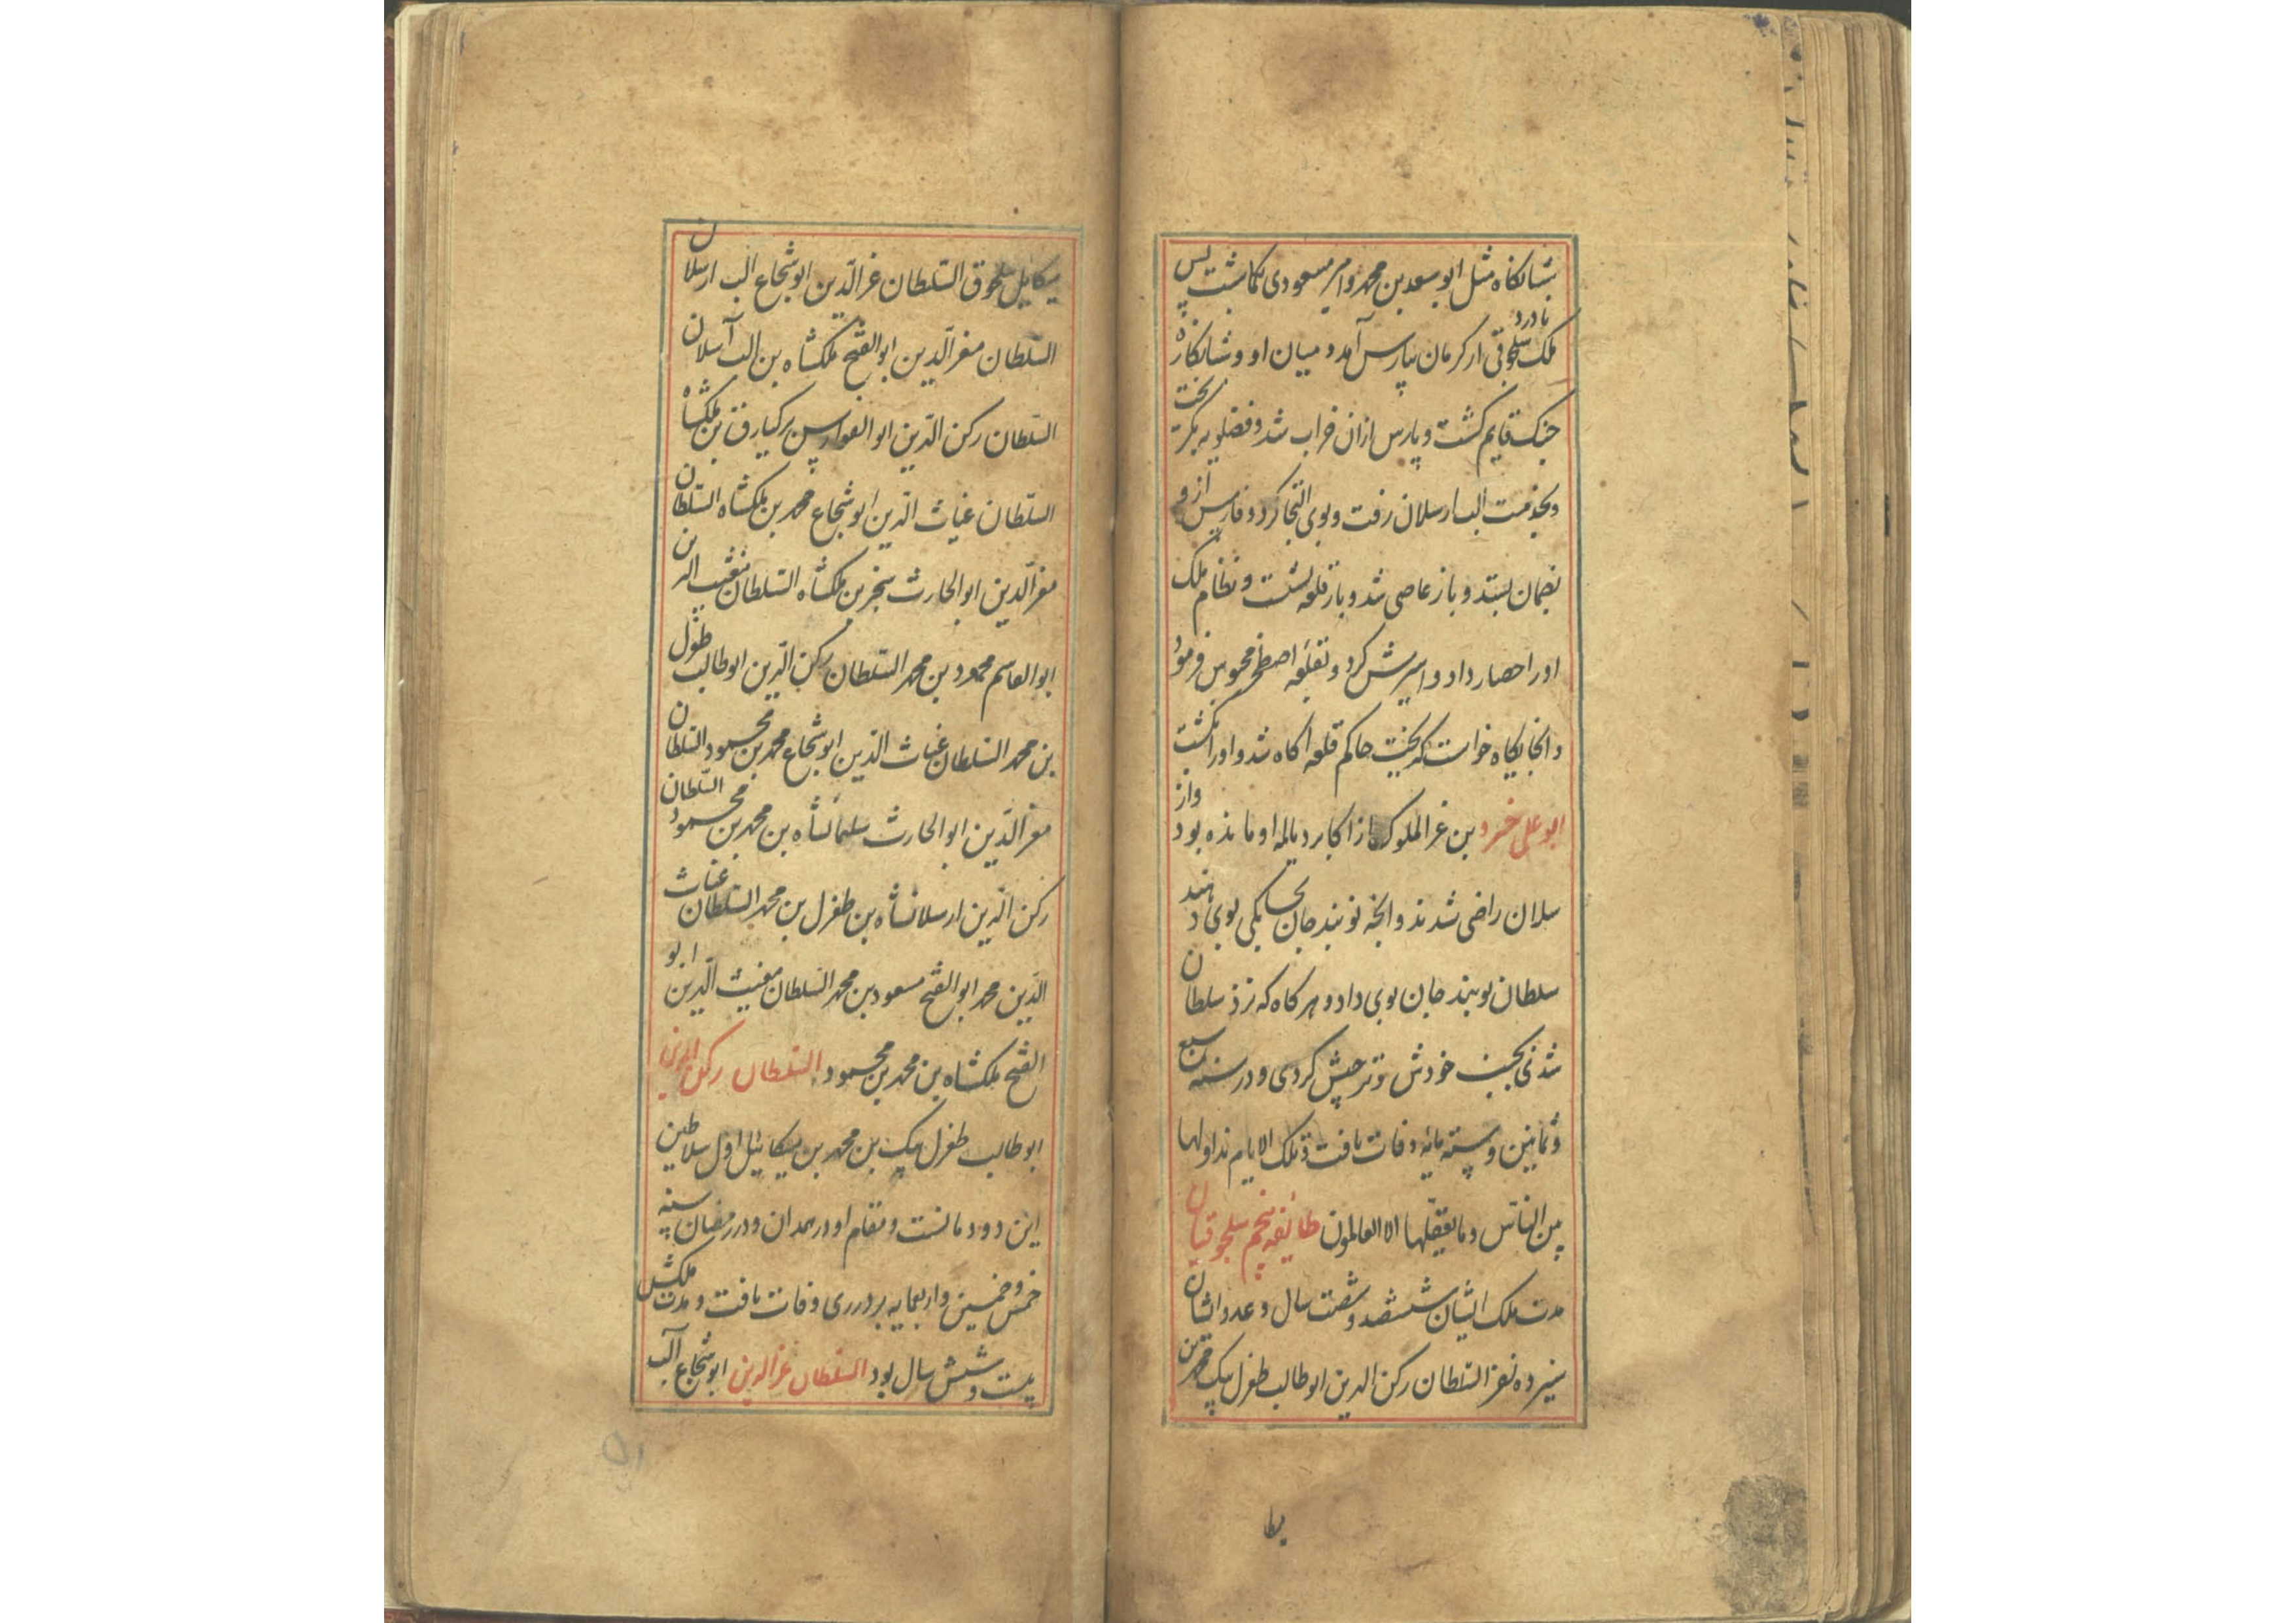 بشبانکاه مثل ابو سعد بن محمد و امیر مسعودی بکماشت پس
قاورد
ملک سلجوقی از کرمان بپارس آمد و میان او و شبانکاره
جنک قایم کشت و پارس ازان خراب شد و فضلویه بکریخت
و بخدمت الب ارسلان رفت و بوی التجا کرد و فارس از و
بضمان بستد و باز عاصی شد و باز قلعه نشست و نظام ملک
او را حصار داد و اسیرش کرد و بقلعه اصطخر محبوس فرمود
و انجایکاه خواست که بکریخت حاکم قلعه اکاه شد و او را بکشت
ابو علی خسرو بن عز الملوک باز اکابر دیالمه او مانده بود و از
سلان راضی شدند و انجه نوبند جان بخاسکی بوی دهند
سلطان نوبند جان بوی داد و هر کاه که نزد سلطان
شدی بجنب خودش و ترحیش کردی و در سنه سبع
و ثمانین و سته مایه وفات یافت و تلک الایام نداولها
بین الناس و ما یعقلها الا العالمون طایفه پنجم سلجوقیان
مدت ملک ایشان ششصد و شصت سال و عدد ایشان
سیزده نفر السلطان رکن الدین ابو طالب طغرل بیک محمد بن
بطا
میکاییل سلجوق السلطان عز الدین ابو شجاع الب ارسلان
السلطان معز الدین ابو الفتح ملکشاه بن الب آرسلان
السلطان رکن الدین ابو الفوارس برکیارق بن ملکشاه
السلطان غیاث الدین ابو شجاع محمد بن ملکشاه السلطان
معز الدین ابو الحارث سنجر بن ملکشاه السلطان مغیث الدین
ابو القاسم محمود بن محمد السلطان رکن الدین ابو طالب طغرل
بن محمد السلطان غیاث الدین ابو شجاع محمد بن محمود السلطان
معز الدین ابو الحارث سلیمانشاه بن محمد بن محمود السلطان
رکن الدین ارسلانشاه بن طغرل بن محمد السلطان غیاث
الدین محمد ابو الفتح مسعود بن محمد السلطان مغیث الدین ابو
الفتح ملکشاه بن محمد بن محمود السلطان رکن الدین
ابو طالب طغرل بیک بن محمد بن میکائیل اول سلاطین
این دودمانست و مقام او در همدان و در رمضان سنه
خمس و خمسین و اربعمایه بر در ری وفات یافت و مدت ملکش
بیست و شش سال بود السلطان عز الدین ابو شجاع آلب
۵۱